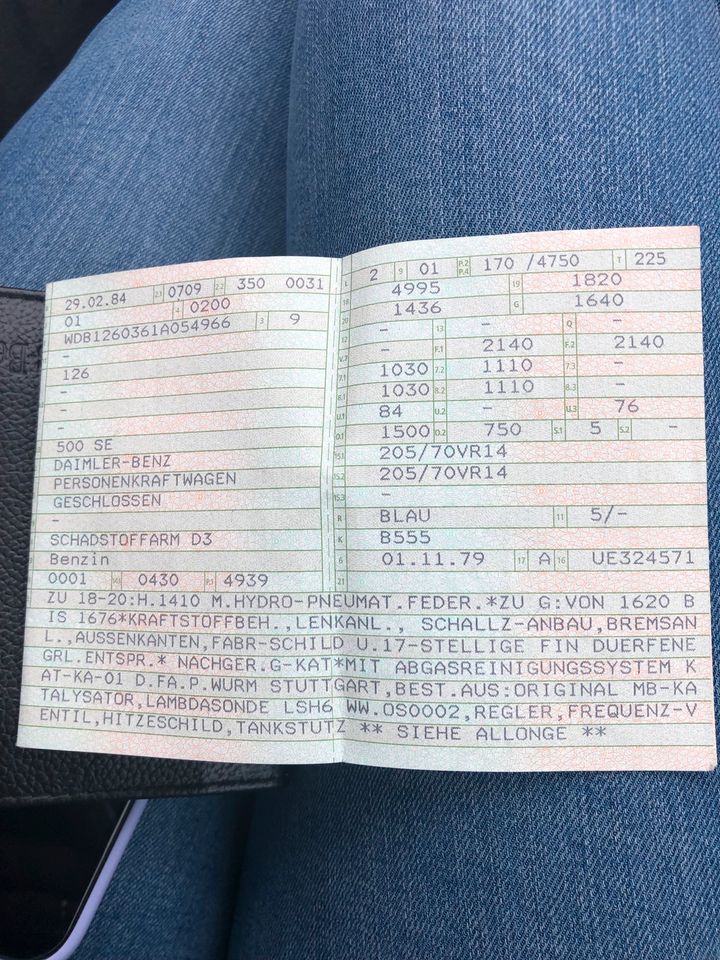 29.02.84 2.1 0709 2.2 350 0031
01 4 0200
WDB1260361A054966 3 9
-
126
-
-
-
500 SE
DAIMLER-BENZ
PERSONENKRAFTWAGEN
GESCHLOSSEN
-
SCHADSTOFFARM D3
Benzin
0001 0430 P.1 4939
L 2 9 01 P.2 P.4 170 /4750 T 225
18 4995 19 1820
20 1436 G 1640
12 - 13 - Q -
V.7 - F.1 2140 F.2 2140
7.1 1030 7.2 1110 7.3 -
8.1 1030 8.2 1110 8.3 -
U.1 84 U.2 - U.3 76
O.1 1500 O.2 750 S.1 5 S.2 -
15.1 205/70VR14
15.2 205/70VR14
15.3 -
R BLAU 11 5/-
K B555
6 01.11.79 17 A 16 UE324571
21
ZU 18-20:H.1410 M.HYDRO-PNEUMAT.FEDER.*ZU G:VON 1620 B
IS 1676*KRAFTSTOFFBEH.,LENKANL., SCHALLZ-ANBAU,BREMSAN
L.,AUSSENKANTEN,FABR-SCHILD U.17-STELLIGE FIN DUERFENE
GRL.ENTSPR.* NACHGER.G-KAT*MIT ABGASREINIGUNGSSYSTEM K
AT-KA-01 D.FA.P.WURM STUTTGART,BEST.AUS:ORIGINAL MB-KA
TALYSATOR,LAMBDASONDE LSH6 WW.OS0002,REGLER,FREQUENZ-V
ENTIL,HITZESCHILD,TANKSTUTZ ** SIEHE ALLONGE **